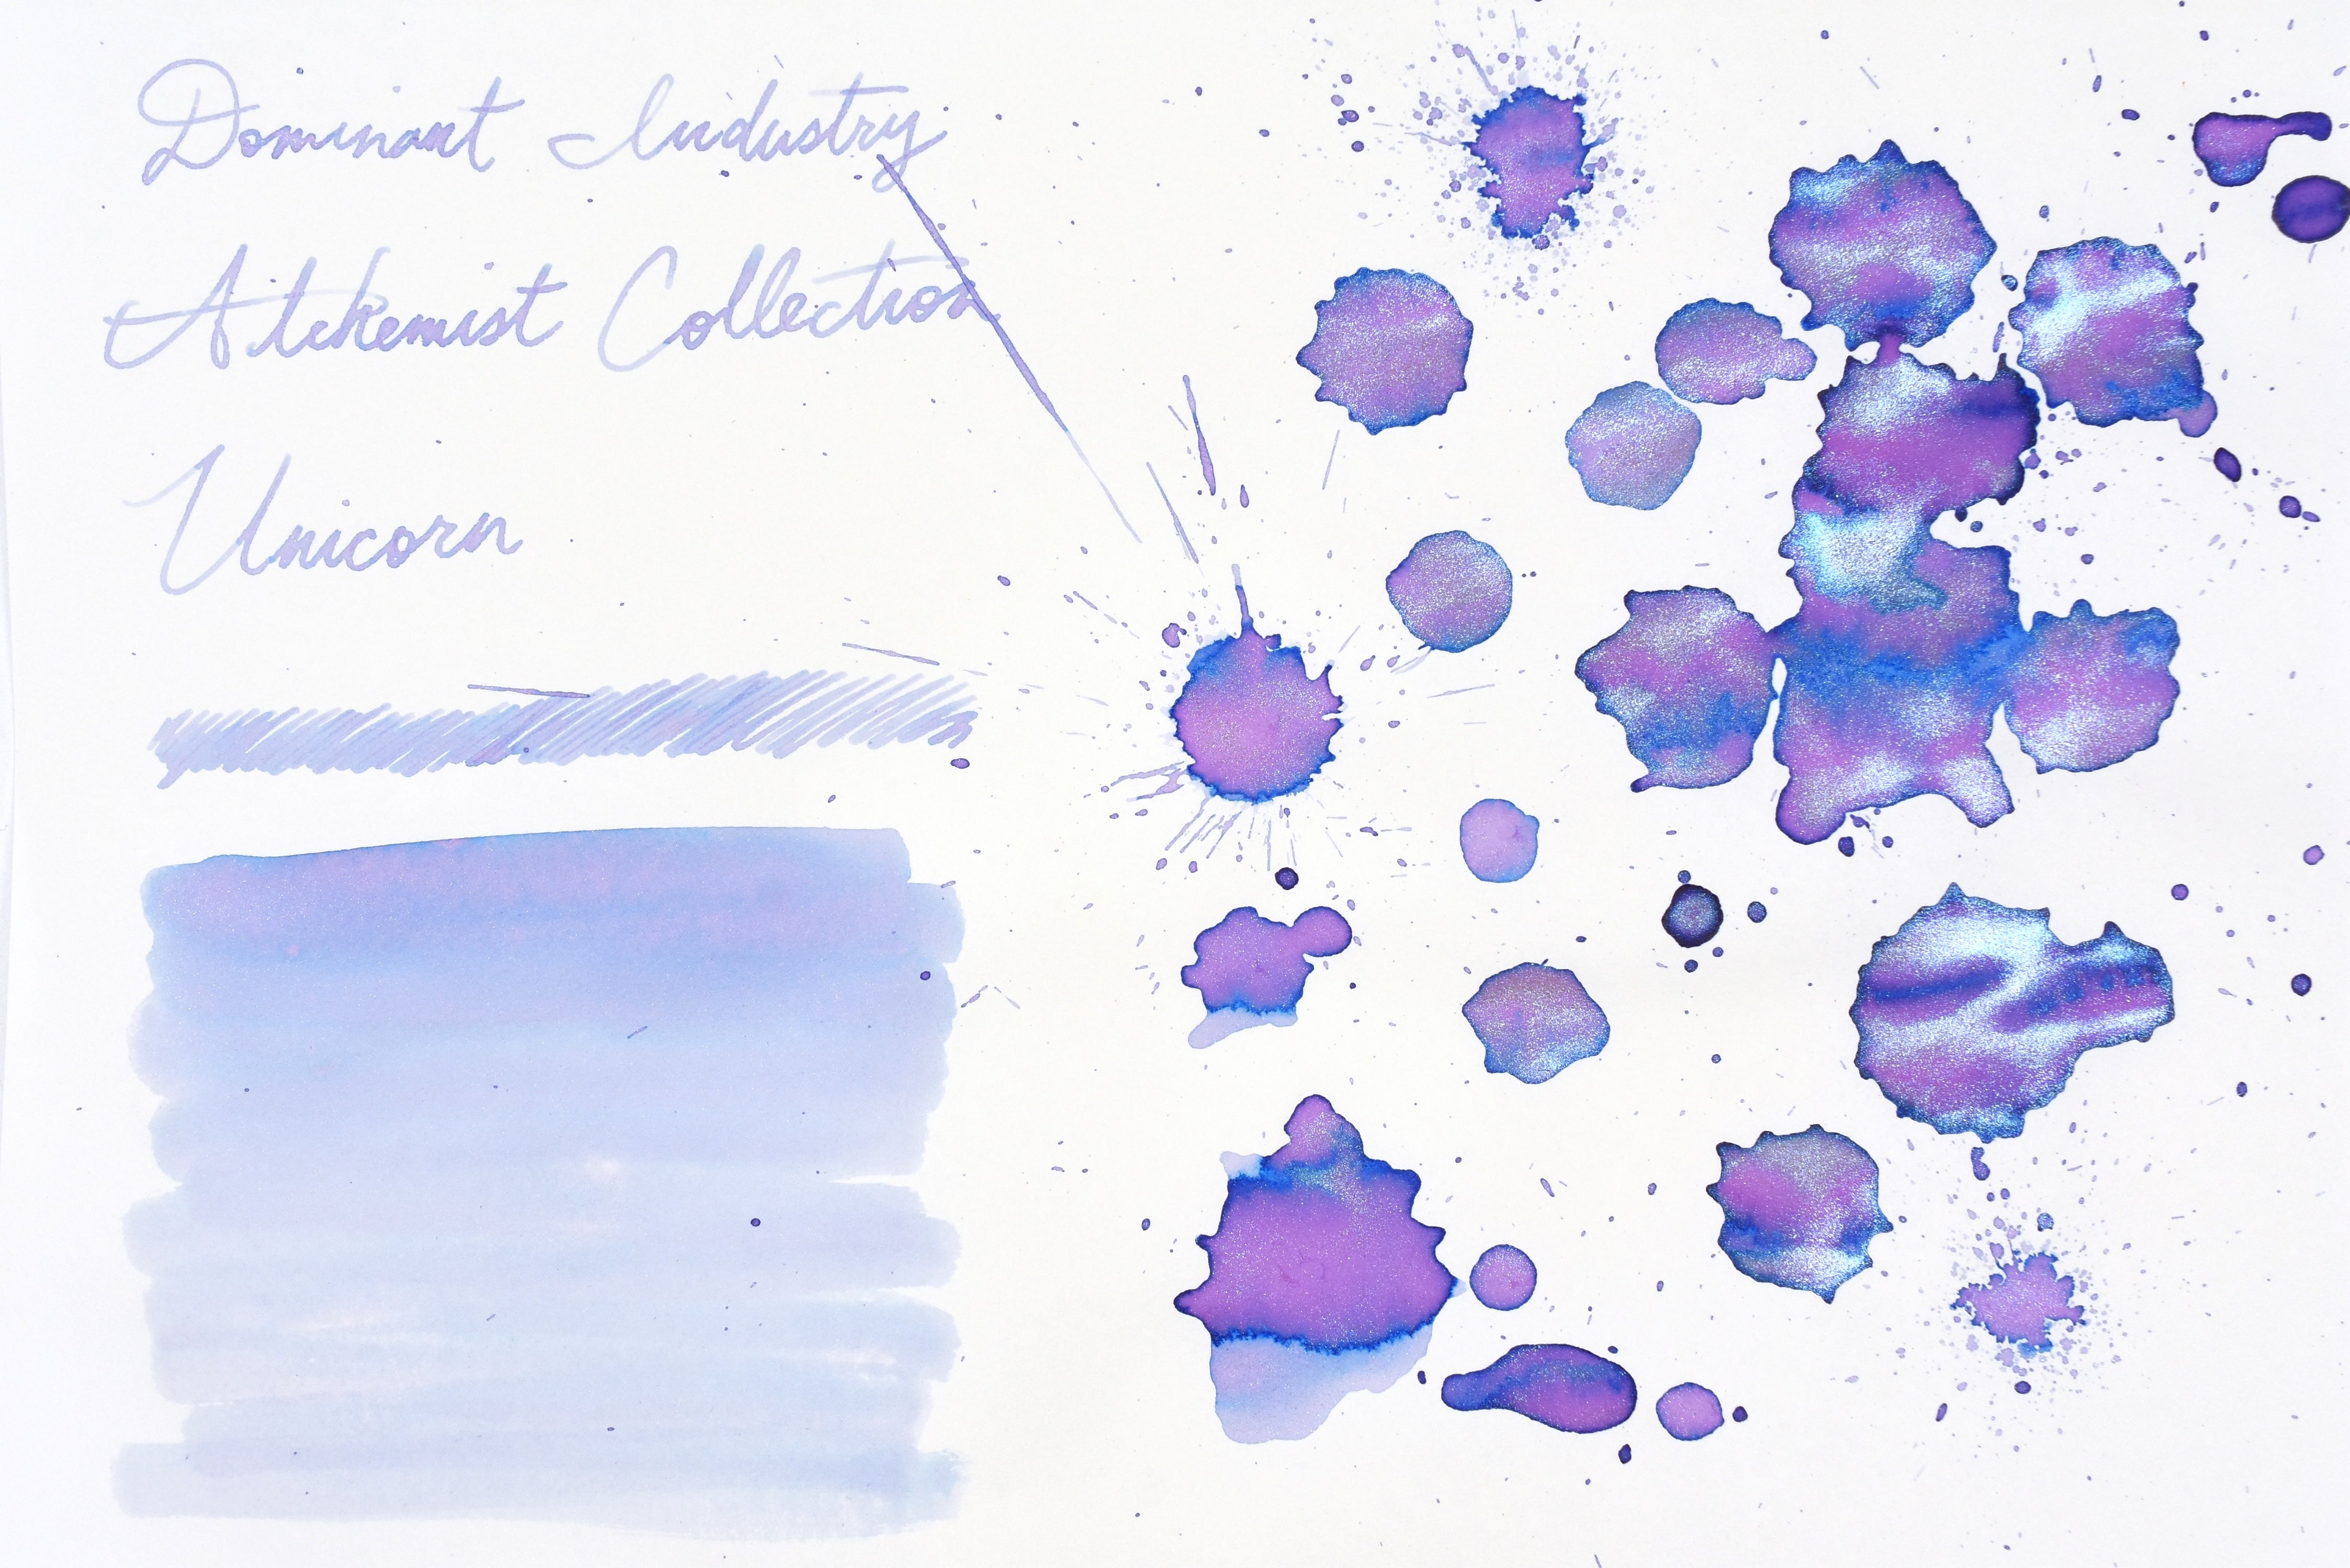 Dominant Industry
Alchemist Collection
Unicorn